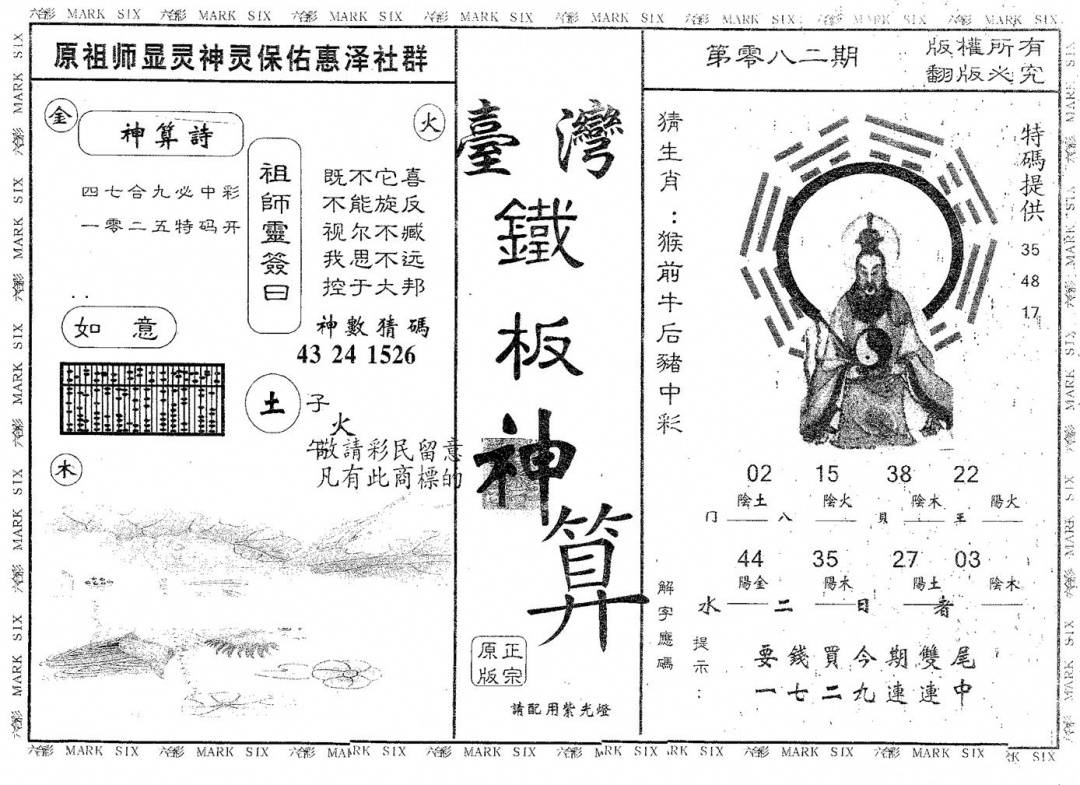 六合彩 MARK SIX 六合彩 MARK SIX 六合彩 MARK SIX 六合彩 MARK SIX 六合彩 MARK SIX 六合彩 MARK SIX 六合彩 MARK SIX
原祖师显灵神灵保佑惠泽社群
金
神算詩
火
四七合九必中彩
一零二五特码开
祖師靈簽曰
既不它喜
不能旋反
视尔不臧
我思不远
控于大邦
神數猜碼
43 24 1526
如意
土
子
火
敬請彩民留意
凡有此商標的
木
臺灣
鐵
板
神
算
正宗
原版
請配用紫光燈
第零八二期
版權所有
翻版必究
猜生肖：猴前牛后豬中彩
特碼提供
35
48
17
02 15 38 22
陰土 陰火 陰木 陽火
门 八 貝 王
44 35 27 03
陽金 陽木 陽土 陰木
水 二 日 者
解字應碼
提示：
要錢買今期雙尾
一七二九連連中
六合彩 MARK SIX 六合彩 MARK SIX 六合彩 MARK SIX 六合彩 MARK SIX 六合彩 MARK SIX 六合彩 MARK SIX 六合彩 MARK SIX